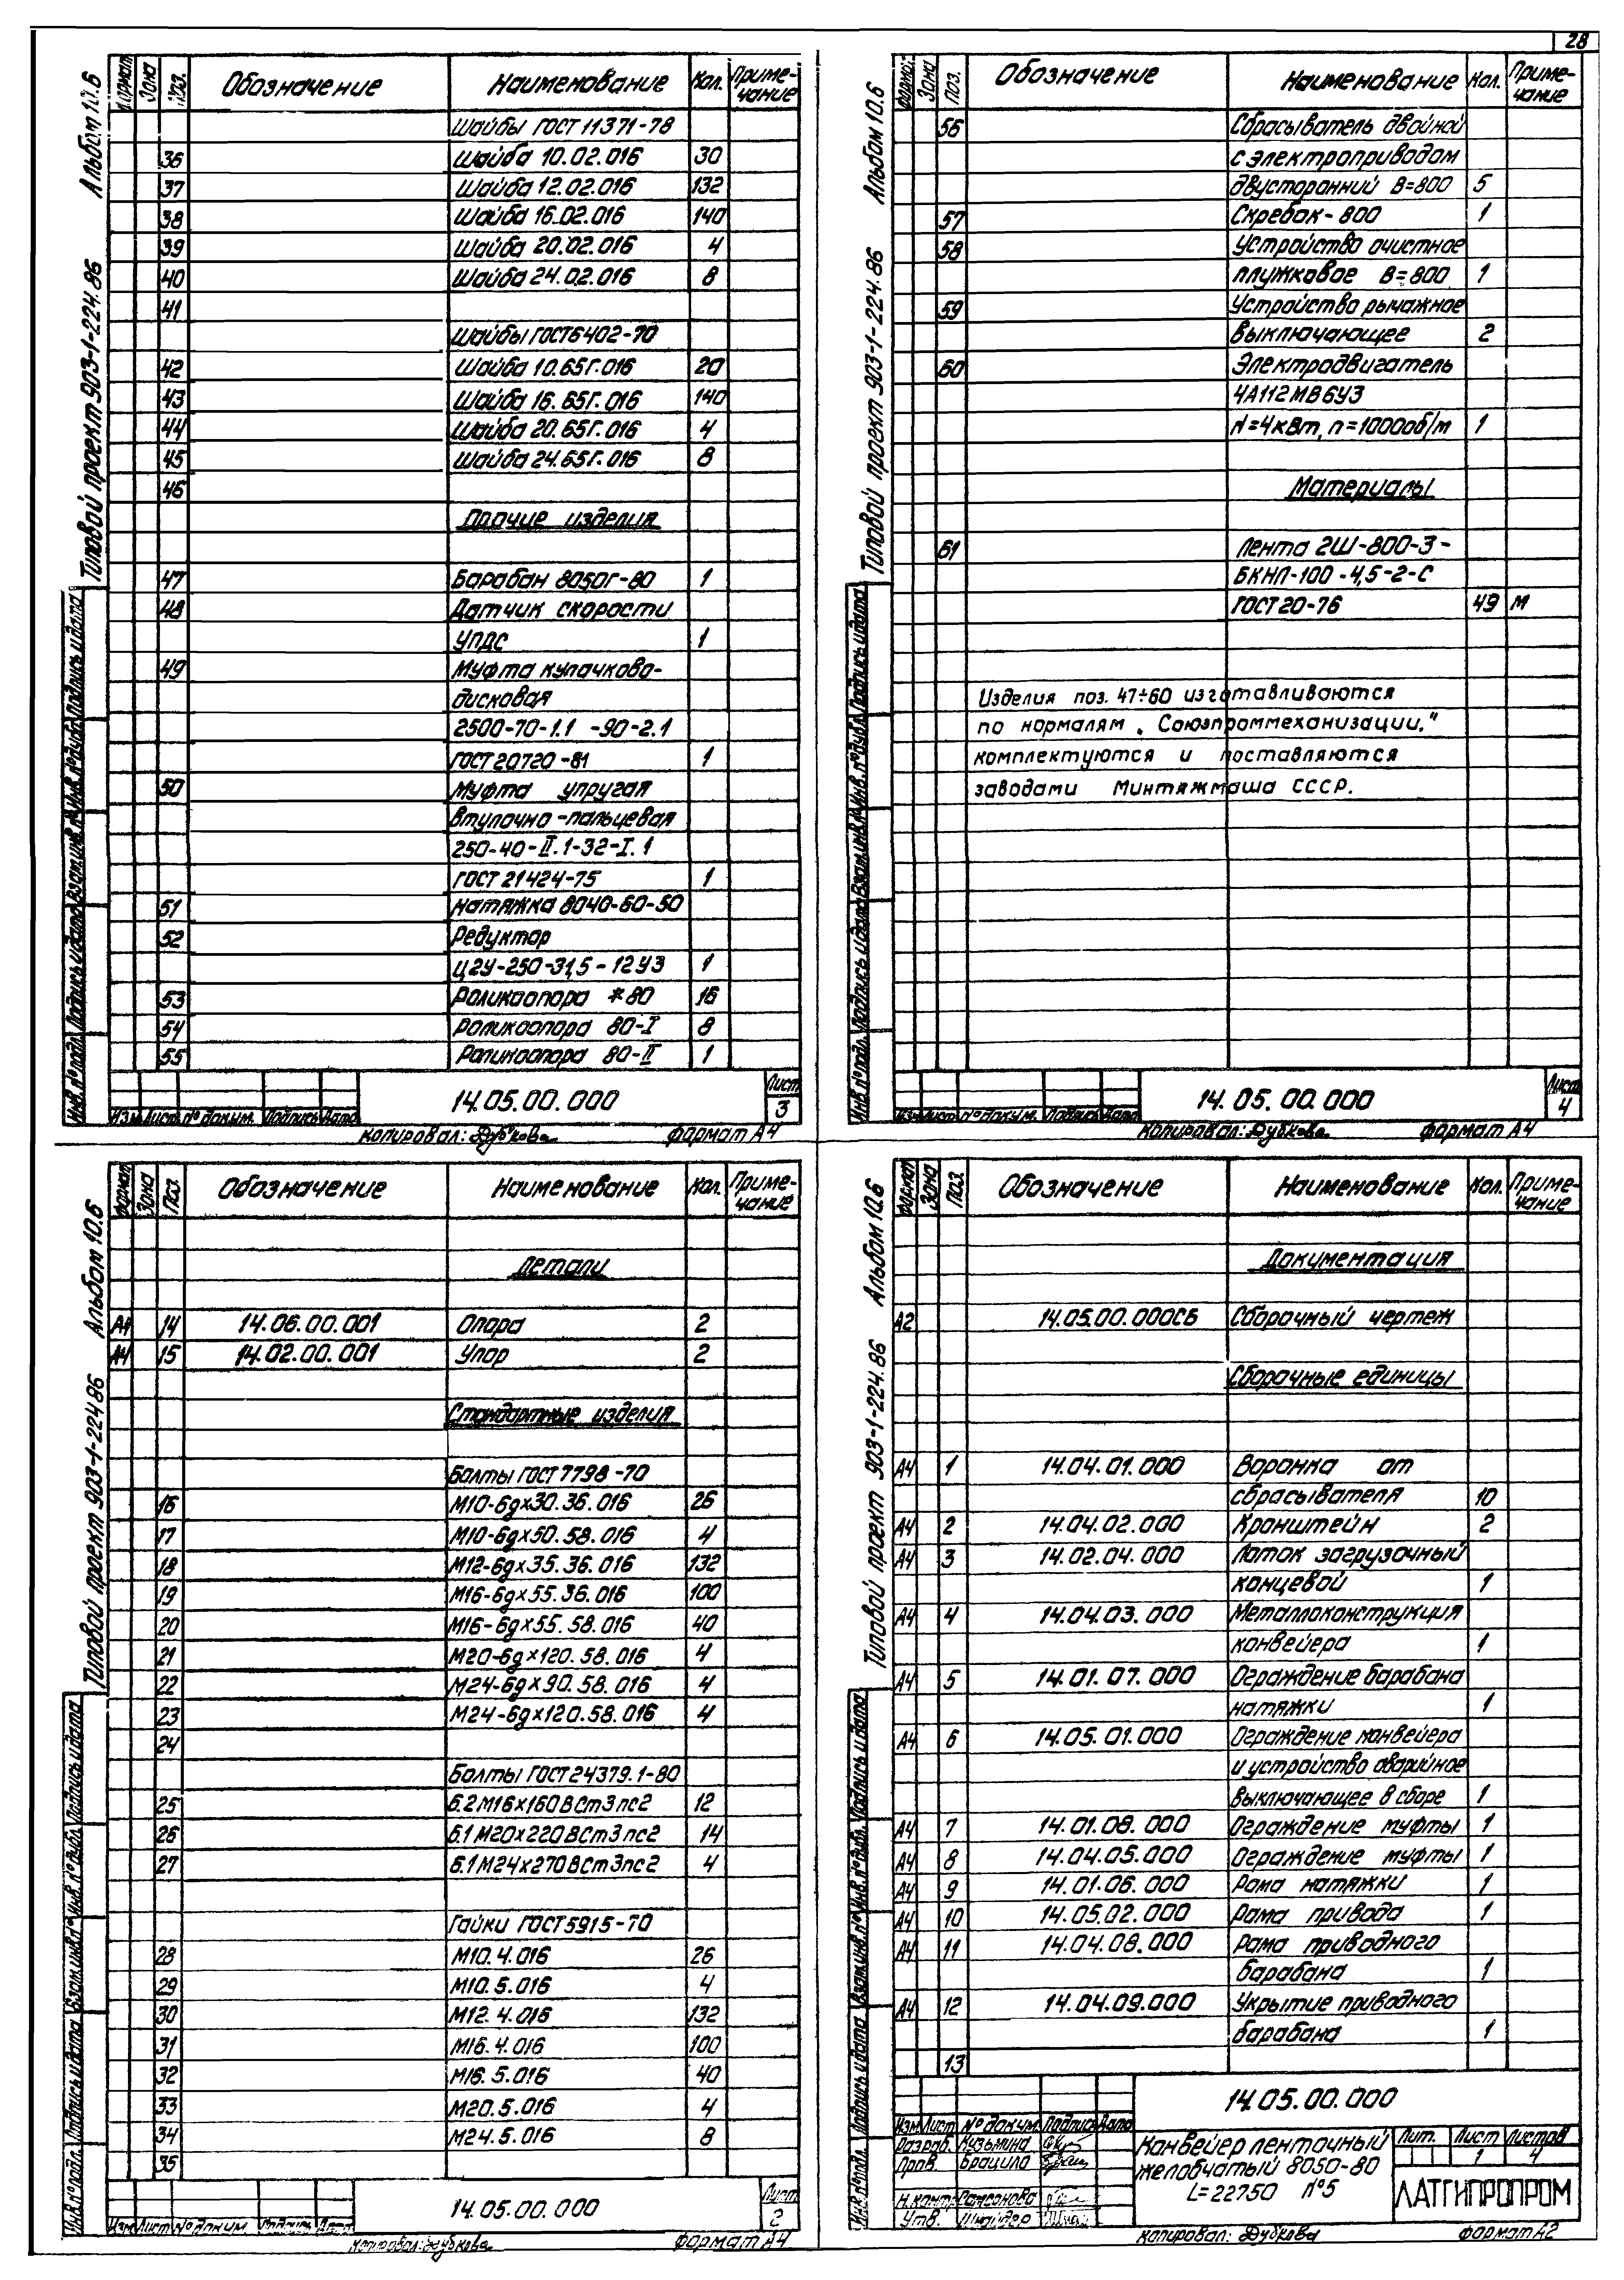 28
Альбом 10.6
Типовой проект 903-1-224.86
Формат Зона Поз. Обозначение Наименование Кол. Примечание
Шайбы ГОСТ 11371-78
36 Шайба 10.02.016 30
37 Шайба 12.02.016 132
38 Шайба 16.02.016 140
39 Шайба 20.02.016 4
40 Шайба 24.02.016 8
41
Шайбы ГОСТ 6402-70
42 Шайба 10.65Г.016 20
43 Шайба 16.65Г.016 140
44 Шайба 20.65Г.016 4
45 Шайба 24.65Г.016 8
46
Прочие изделия
47 Барабан 8050Г-80 1
48 Датчик скорости
УПДС 1
49 Муфта кулачково-
дисковая
2500-70-1.1 -90-2.1
ГОСТ 20720-81 1
50 Муфта упругая
втулочно-пальцевая
250-40-II.1-32-I.1
ГОСТ 21424-75 1
51 Натяжка 8040-60-50
52 Редуктор
Ц2У-250-31,5-12У3 1
53 Роликоопора *80 16
54 Роликоопора 80-I 8
55 Роликоопора 80-II 1
Инв.№подл. Подпись и дата Взам.инв.№ Инв.№дубл. Подпись и дата
Изм Лист №докум. Подпись Дата
14.05.00.000
Лист
3
Копировал: Дубкова Формат А4
Альбом 10.6
Типовой проект 903-1-224.86
Формат Зона Поз. Обозначение Наименование Кол. Примечание
56 Сбрасыватель двойной
с электроприводом
двусторонний В=800 5
57 Скребок-800 1
58 Устройство очистное
плужковое В=800 1
59 Устройство рычажное
выключающее 2
60 Электродвигатель
4А112МВ6У3
N=4кВт, n=1000об/м 1
Материалы
61 Лента 2Ш-800-3-
БКНЛ-100-4,5-2-С
ГОСТ 20-76 49 м
Изделия поз. 47÷60 изготавливаются
по нормалям „Союзпроммеханизации."
комплектуются и поставляются
заводами Минтяжмаша СССР.
Инв.№подл. Подпись и дата Взам.инв.№ Инв.№дубл. Подпись и дата
Изм Лист №докум. Подпись Дата
14.05.00.000
Лист
4
Копировал: Дубкова Формат А4
Альбом 10.6
Типовой проект 903-1-224.86
Формат Зона Поз. Обозначение Наименование Кол. Примечание
Детали
А4 14 14.06.00.001 Опора 2
А4 15 14.02.00.001 Упор 2
Стандартные изделия
Болты ГОСТ 7798-70
16 М10-6gх30.36.016 26
17 М10-6gх50.58.016 4
18 М12-6gх35.36.016 132
19 М16-6gх55.36.016 100
20 М16-6gх55.58.016 40
21 М20-6gх120.58.016 4
22 М24-6gх90.58.016 4
23 М24-6gх120.58.016 4
24
Болты ГОСТ 24379.1-80
25 6.2М16х160ВСт3пс2 12
26 6.1М20х220ВСт3пс2 14
27 6.1М24х270ВСт3пс2 4
Гайки ГОСТ 5915-70
28 М10.4.016 26
29 М10.5.016 4
30 М12.4.016 132
31 М16.4.016 100
32 М16.5.016 40
33 М20.5.016 4
34 М24.5.016 8
35
Инв.№подл. Подпись и дата Взам.инв.№ Инв.№дубл. Подпись и дата
Изм Лист №докум. Подпись Дата
14.05.00.000
Лист
2
Копировал: Дубкова Формат А4
Альбом 10.6
Типовой проект 903-1-224.86
Формат Зона Поз. Обозначение Наименование Кол. Примечание
Документация
А2 14.05.00.000СБ Сборочный чертеж
Сборочные единицы
А4 1 14.04.01.000 Воронка от
сбрасывателя 10
А4 2 14.04.02.000 Кронштейн 2
А4 3 14.02.04.000 Лоток загрузочный
концевой 1
А4 4 14.04.03.000 Металлоконструкция
конвейера 1
А4 5 14.01.07.000 Ограждение барабана
натяжки 1
А4 6 14.05.01.000 Ограждение конвейера
и устройство аварийное
выключающее в сборе 1
А4 7 14.01.08.000 Ограждение муфты 1
А4 8 14.04.05.000 Ограждение муфты 1
А4 9 14.01.06.000 Рама натяжки 1
А4 10 14.05.02.000 Рама привода 1
А4 11 14.04.08.000 Рама приводного
барабана 1
А4 12 14.04.09.000 Укрытие приводного
барабана 1
13
Инв.№подл. Подпись и дата Взам.инв.№ Инв.№дубл. Подпись и дата
14.05.00.000
Изм Лист №докум. Подпись Дата
Разраб. Кузьмина
Пров. Брацило
Н.контр. Самсонова
Утв. Шнайдер
Конвейер ленточный
желобчатый 8050-80
L=22750 №5
Лит. Лист Листов
1 4
ЛАТГИПРОПРОМ
Копировал: Дубкова Формат А2